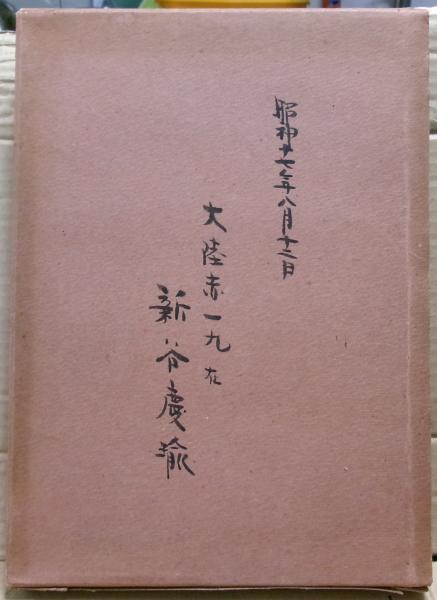 昭和十七年八月十二日
大陸赤一九在
新谷慶瑜